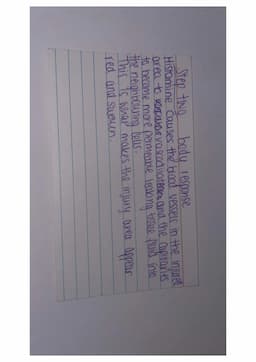 Step two body response
Histamine causes the blood vessels in the injured
area to vasodilate and the capillaries
to become more permeable leaking tissue fluid into
the neighbouring
This is what makes the injury area appear
red and swollen.